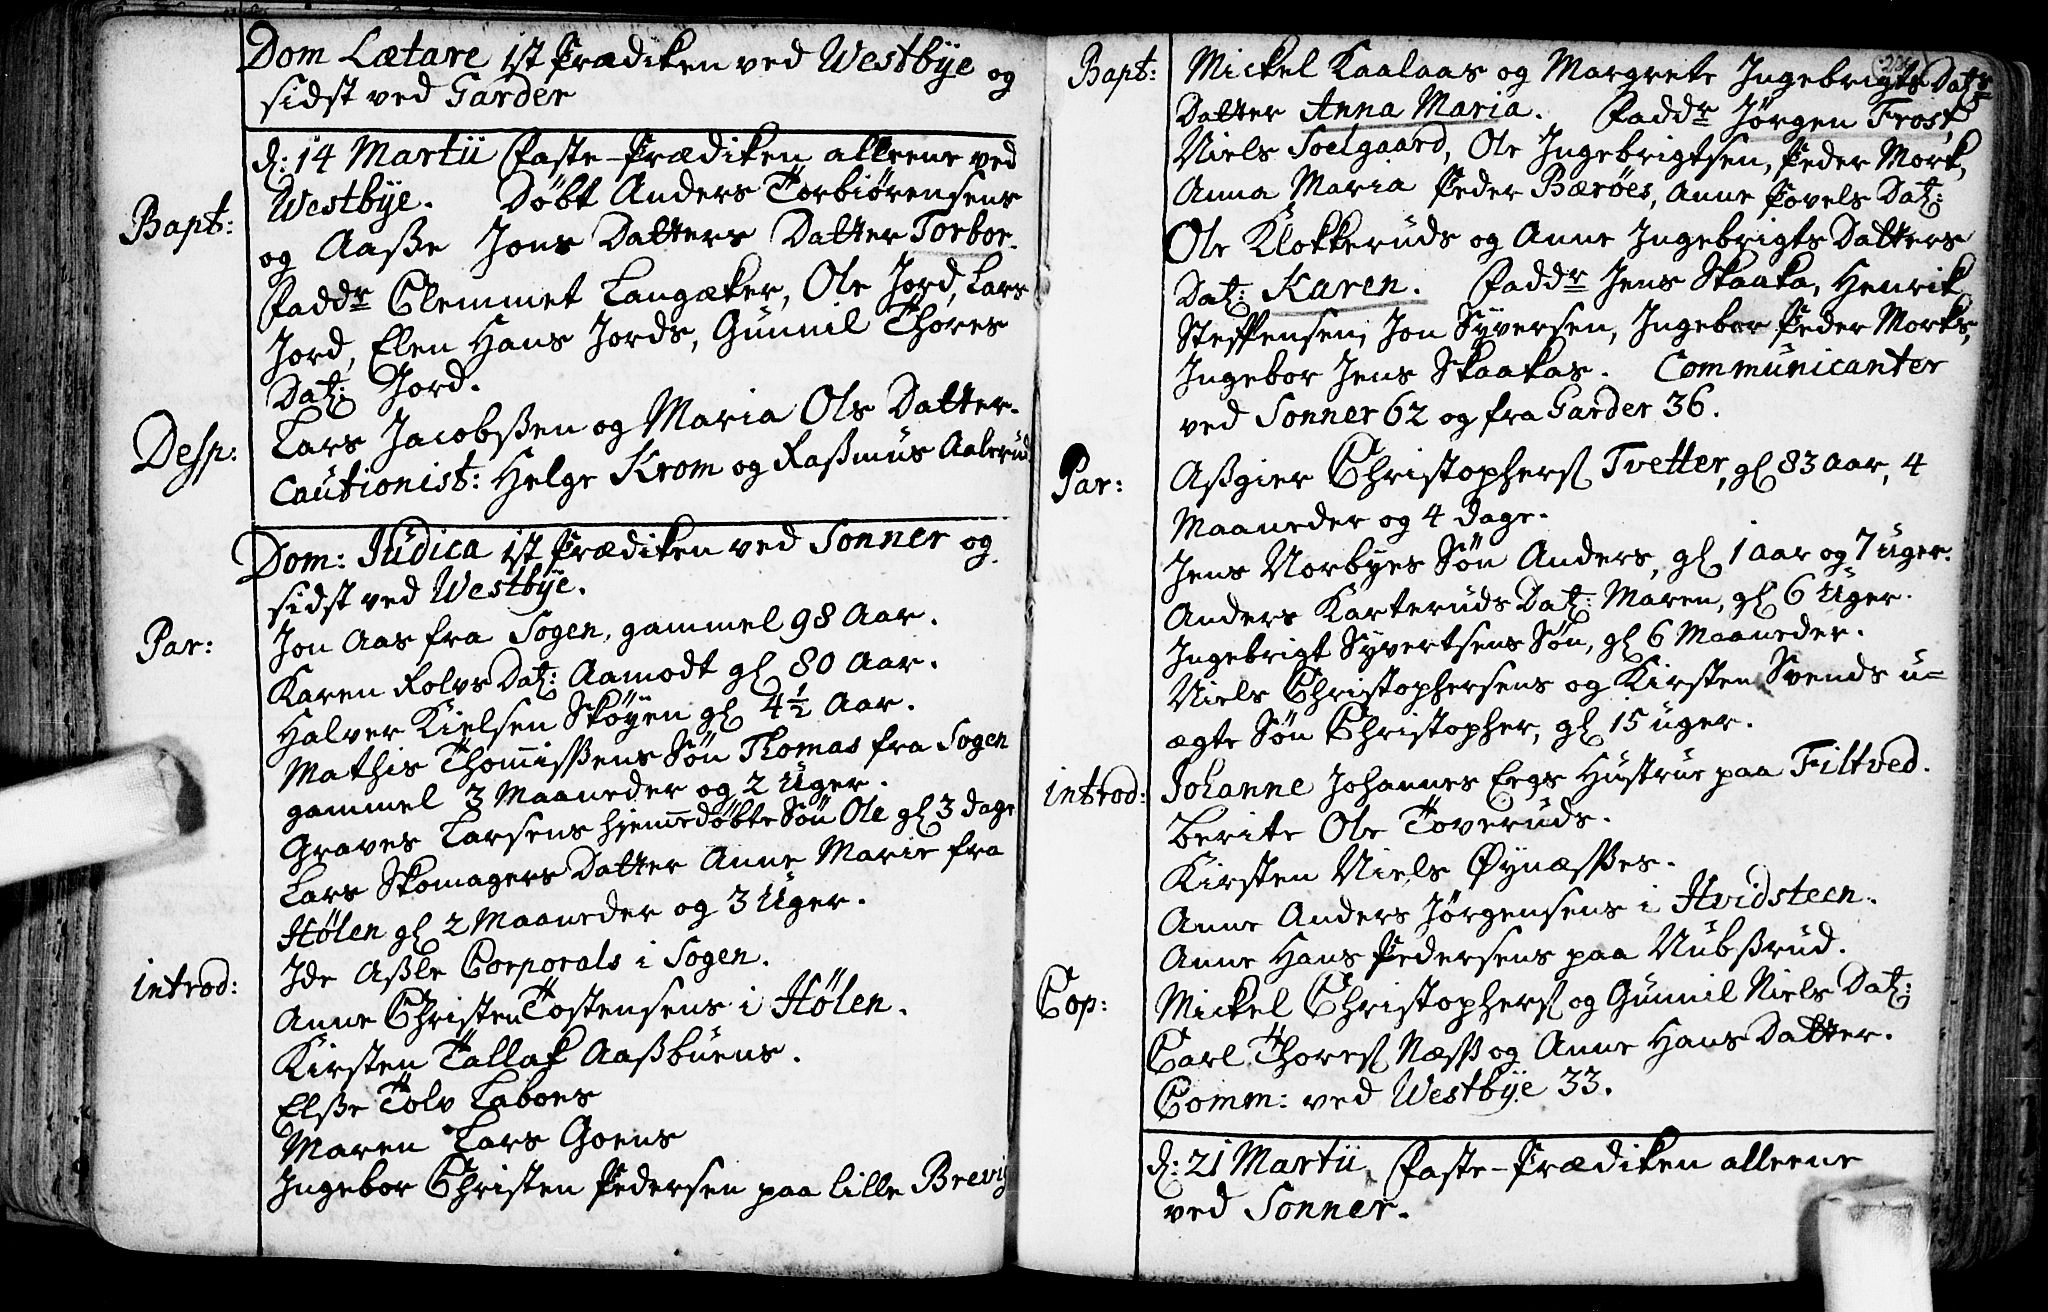 Dom Lætare 1st Prædiken ved Westbÿe og
sidst ved Garder
d: 14 Martii Faste-Prædiken alleene ved
Bapt: Westbÿe. Döbt Anders Torbiörensens
og Aaße Jons Datters Datter Torbor.
Faddr Clemmet Langæker, Ole Jord, Lars
Jord, Elen Hans Jords, Gunnil Thores
Dat: Jord.
Desp: Lars Jacobßen og Maria Ols Datter.
Cautionist: Helge Krom og Raßmus Aalerud
Dom: Judica 1st Prædiken ved Sonner og
sidst ved Westbÿe.
Par: Jon Aas fra Sogen, gammel 98 Aar.
Karen Rolvs Dat: Aamodt gl 80 Aar.
Halver Kielsen Sköyen gl 4½ Aar.
Mathis Thomißens Sön Thomas fra Sogen
gammel 3 Maaneder og 2 Uger.
Graves Larsens hjemedöbte Sön Ole gl 3 dage
Lars Skomagers Datter Anne Marie fra
Hölen gl 2 Maaneder og 3 Uger.
introd: Ide Aßle Corporals i Sogen.
Anne Christen Tostensens i Hölen.
Kirsten Tallak Aaßbuens.
Elße Tolv Laboes
Maren Lars Goens
Ingebor Christen Pedersen paa lille Brevig
Bapt: Mickel Kaalaas og Margrete Ingebrigts Datrs
Datter Anna Maria. Faddr Jörgen Frost,
Niels Soelgaard, Ole Ingebrigtsen, Peder Mork,
Anna Maria Peder Bæröes, Anne Povels Dat:
Ole Klokkeruds og Anne Ingebrigts Datters
Dat: Karen. Faddr Jens Skaaka, Henrik
Steffensen, Jon Syversen, Ingebor Peder Morks,
Ingebor Jens Skaakas. Communicanter
ved Sonner 62 og fra Garder 36.
Par: Aßgier Christophers Tvetter, gl 83 Aar, 4
Maaneder og 4 dage.
Jens Norbyes Sön Anders, gl 1 Aar og 7 Uger.
Anders Karteruds Dat: Maren, gl 6 Uger.
Ingebrigt Syvertsens Sön, gl 6 Maaneder.
Niels Christophersens og Kirsten Svends u-
ægte Sön Christopher, gl 15 uger.
introd: Johanne Johannes Eegs Hustrue paa Filtved.
Berite Ole Toveruds.
Kirsten Niels Øynæßes.
Anne Anders Jörgensens i Hvidsteen.
Anne Hans Pedersens paa Nubßrud.
Cop: Mickel Christophers og Gunnil Niels Dat:
Carl Thores Næss og Anne Hans Datter.
Comm: ved Westbÿe 33.
d: 21 Martii, Faste-Prædiken alleene
ved Sonner.